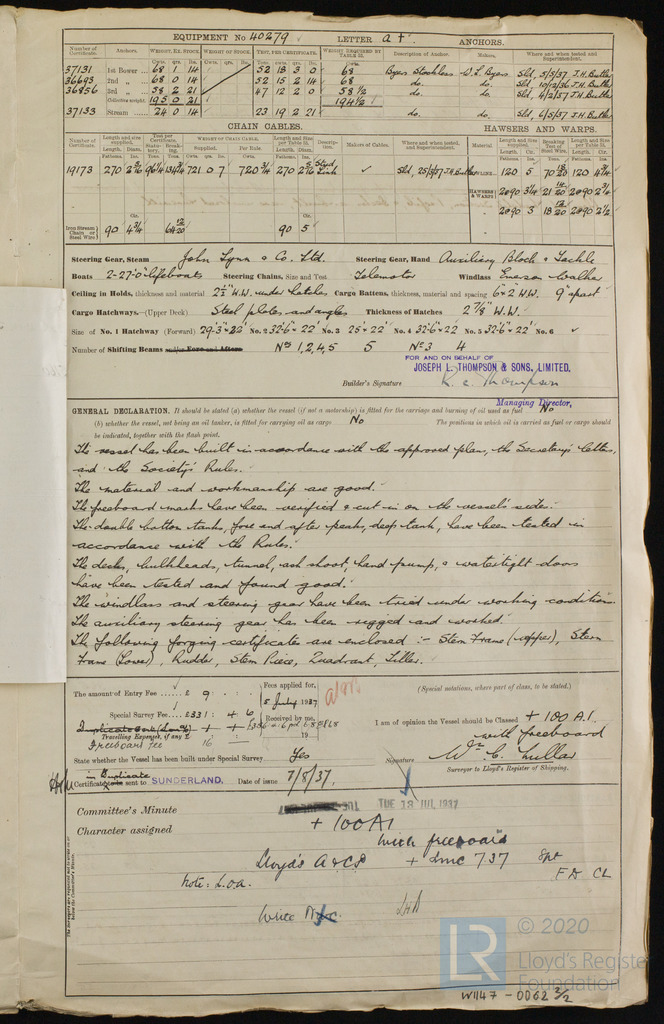 EQUIPMENT No 40279 LETTER a† ANCHORS.
Number of Certificate. Anchors. WEIGHT, EX. STOCK. WEIGHT OF STOCK. TEST, PER CERTIFICATE. WEIGHT REQUIRED BY TABLE 22. Description of Anchor. Makers. Where and when tested and Superintendent.
37131 1st Bower 68 1 14 52 18 3 0 68 Byers Stockless W. L. Byers Sld, 5/5/37 J.H. Butler
36693 2nd „ 68 0 14 52 15 2 14 68 do. do. Sld, 10/12/36 J.H. Butler
36856 3rd „ 58 2 21 47 12 2 0 58 ½ do. do. Sld, 4/2/37 J.H. Butler
Collective weight 195 0 21 194 ½
37133 Stream 24 0 14 23 19 2 21 do. do. Sld, 6/5/37 J.H. Butler
CHAIN CABLES. HAWSERS AND WARPS.
Number of Certificate. Length and size supplied. Test per Certificate WEIGHT OF CHAIN CABLE. Length and Size per Table 22. Description. Makers of Cables. Where and when tested, and Superintendent. Material Length and Size supplied. Breaking Test of Steel Wire. Length and Size per Table 22.
Supplied. Per Rule.
19173 270 721 0 7 720 ¾ 270 Stud Link Sld, 25/5/37 J.H. Butler TOWLINE 120 5 120 4 ¾
HAWSERS & WARPS 2@90 3/4 2@90 2 ¾
2@90 3 2@90 2 ½
Iron Stream Chain or Steel Wire 90 4 ¾ 90 5
Steering Gear, Steam John Lynn & Co. Ltd. Steering Gear, Hand Auxiliary Block & Tackle
Boats 2-27'0" lifeboats Steering Chains, Size and Test Telemotor Windlass Emerson Walker
Ceiling in Holds, thickness and material 2½" W.W. under hatches Cargo Battens, thickness, material and spacing 6"×2 W.W. 9" apart
Cargo Hatchways.—(Upper Deck) Steel plates and angles Thickness of Hatches 2 7/8" W.W.
Size of No. 1 Hatchway (Forward) 29'-3"×22' No. 2 32'6"×22' No. 3 25'×22' No. 4 32'6"×22 No. 5 32'6"×22' No. 6
Number of Shifting Beams and/or Fore and Afters Nos 1, 2, 4, 5 5 No 3 4
FOR AND ON BEHALF OF
JOSEPH L. THOMPSON & SONS, LIMITED.
Builder's Signature R. C. Thompson
Managing Director,
GENERAL DECLARATION. It should be stated (a) whether the vessel (if not a motorship) is fitted for the carriage and burning of oil used as fuel No
(b) whether the vessel, not being an oil tanker, is fitted for carrying oil as cargo No The positions in which oil is carried as fuel or cargo should
be indicated, together with the flash point.
The vessel has been built in accordance with the approved plans, the Secretary's letters,
and the Society's Rules.
The material and workmanship are good.
The freeboard marks have been verified & cut in on the vessel's sides.
The double bottom tanks, fore and after peaks, deep tank, have been tested in
accordance with the Rules.
The decks, bulkheads, tunnel, ash shoot, hand pump, & watertight doors
have been tested and found good.
The windlass and steering gear have been tried under working conditions
The auxiliary steering gear has been rigged and worked.
The following forging certificates are enclosed :- Stern Frame (upper), Stern
Frame (Lower), Rudder, Stem Piece, Quadrant, Tiller.
The amount of Entry Fee £ 9 : . : . Fees applied for, (Special notations, where part of class, to be stated.)
5 July 1937
Special Survey Fee £331 : 4 : 6 Received by me,
I am of opinion the Vessel should be Classed + 100 A.1.
with freeboard
Travelling Expenses, if any £ 19
Freeboard fee 16
State whether the Vessel has been built under Special Survey Yes
Signature Wm C. Lullar
Surveyor to Lloyd's Register of Shipping.
in Duplicate
Certificate to be sent to SUNDERLAND. Date of issue 7/8/37.
Committee's Minute TUE 13 JUL 1937
Character assigned + 100 A1
with freeboard
Lloyd's A & CP + LMC 7 37
FD CL
Note: L.O.A.
Write
The Surveyors are requested not to write below the Committee's Minute.
LR
© 2020
Lloyd's Register
Foundation
W1147 - 0062 3/2